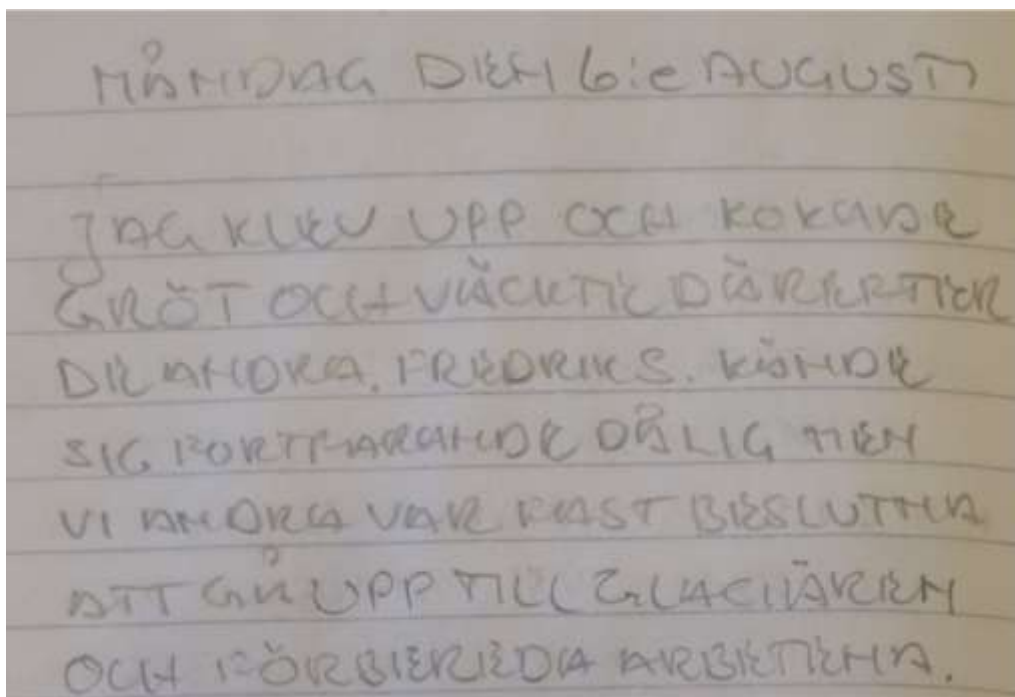 MÅNDAG DEN 6:e AUGUSTI
JAG KLEV UPP OCH KOKADE
GRÖT OCH VÄCKTE DÄREFTER
DE ANDRA. FREDRIK S. KÄNDE
SIG FORTFARANDE DÅLIG MEN
VI ANDRA VAR FAST BESLUTNA
ATT GÅ UPP TILL GLACIÄREN
OCH FÖRBEREDA ARBETENA.